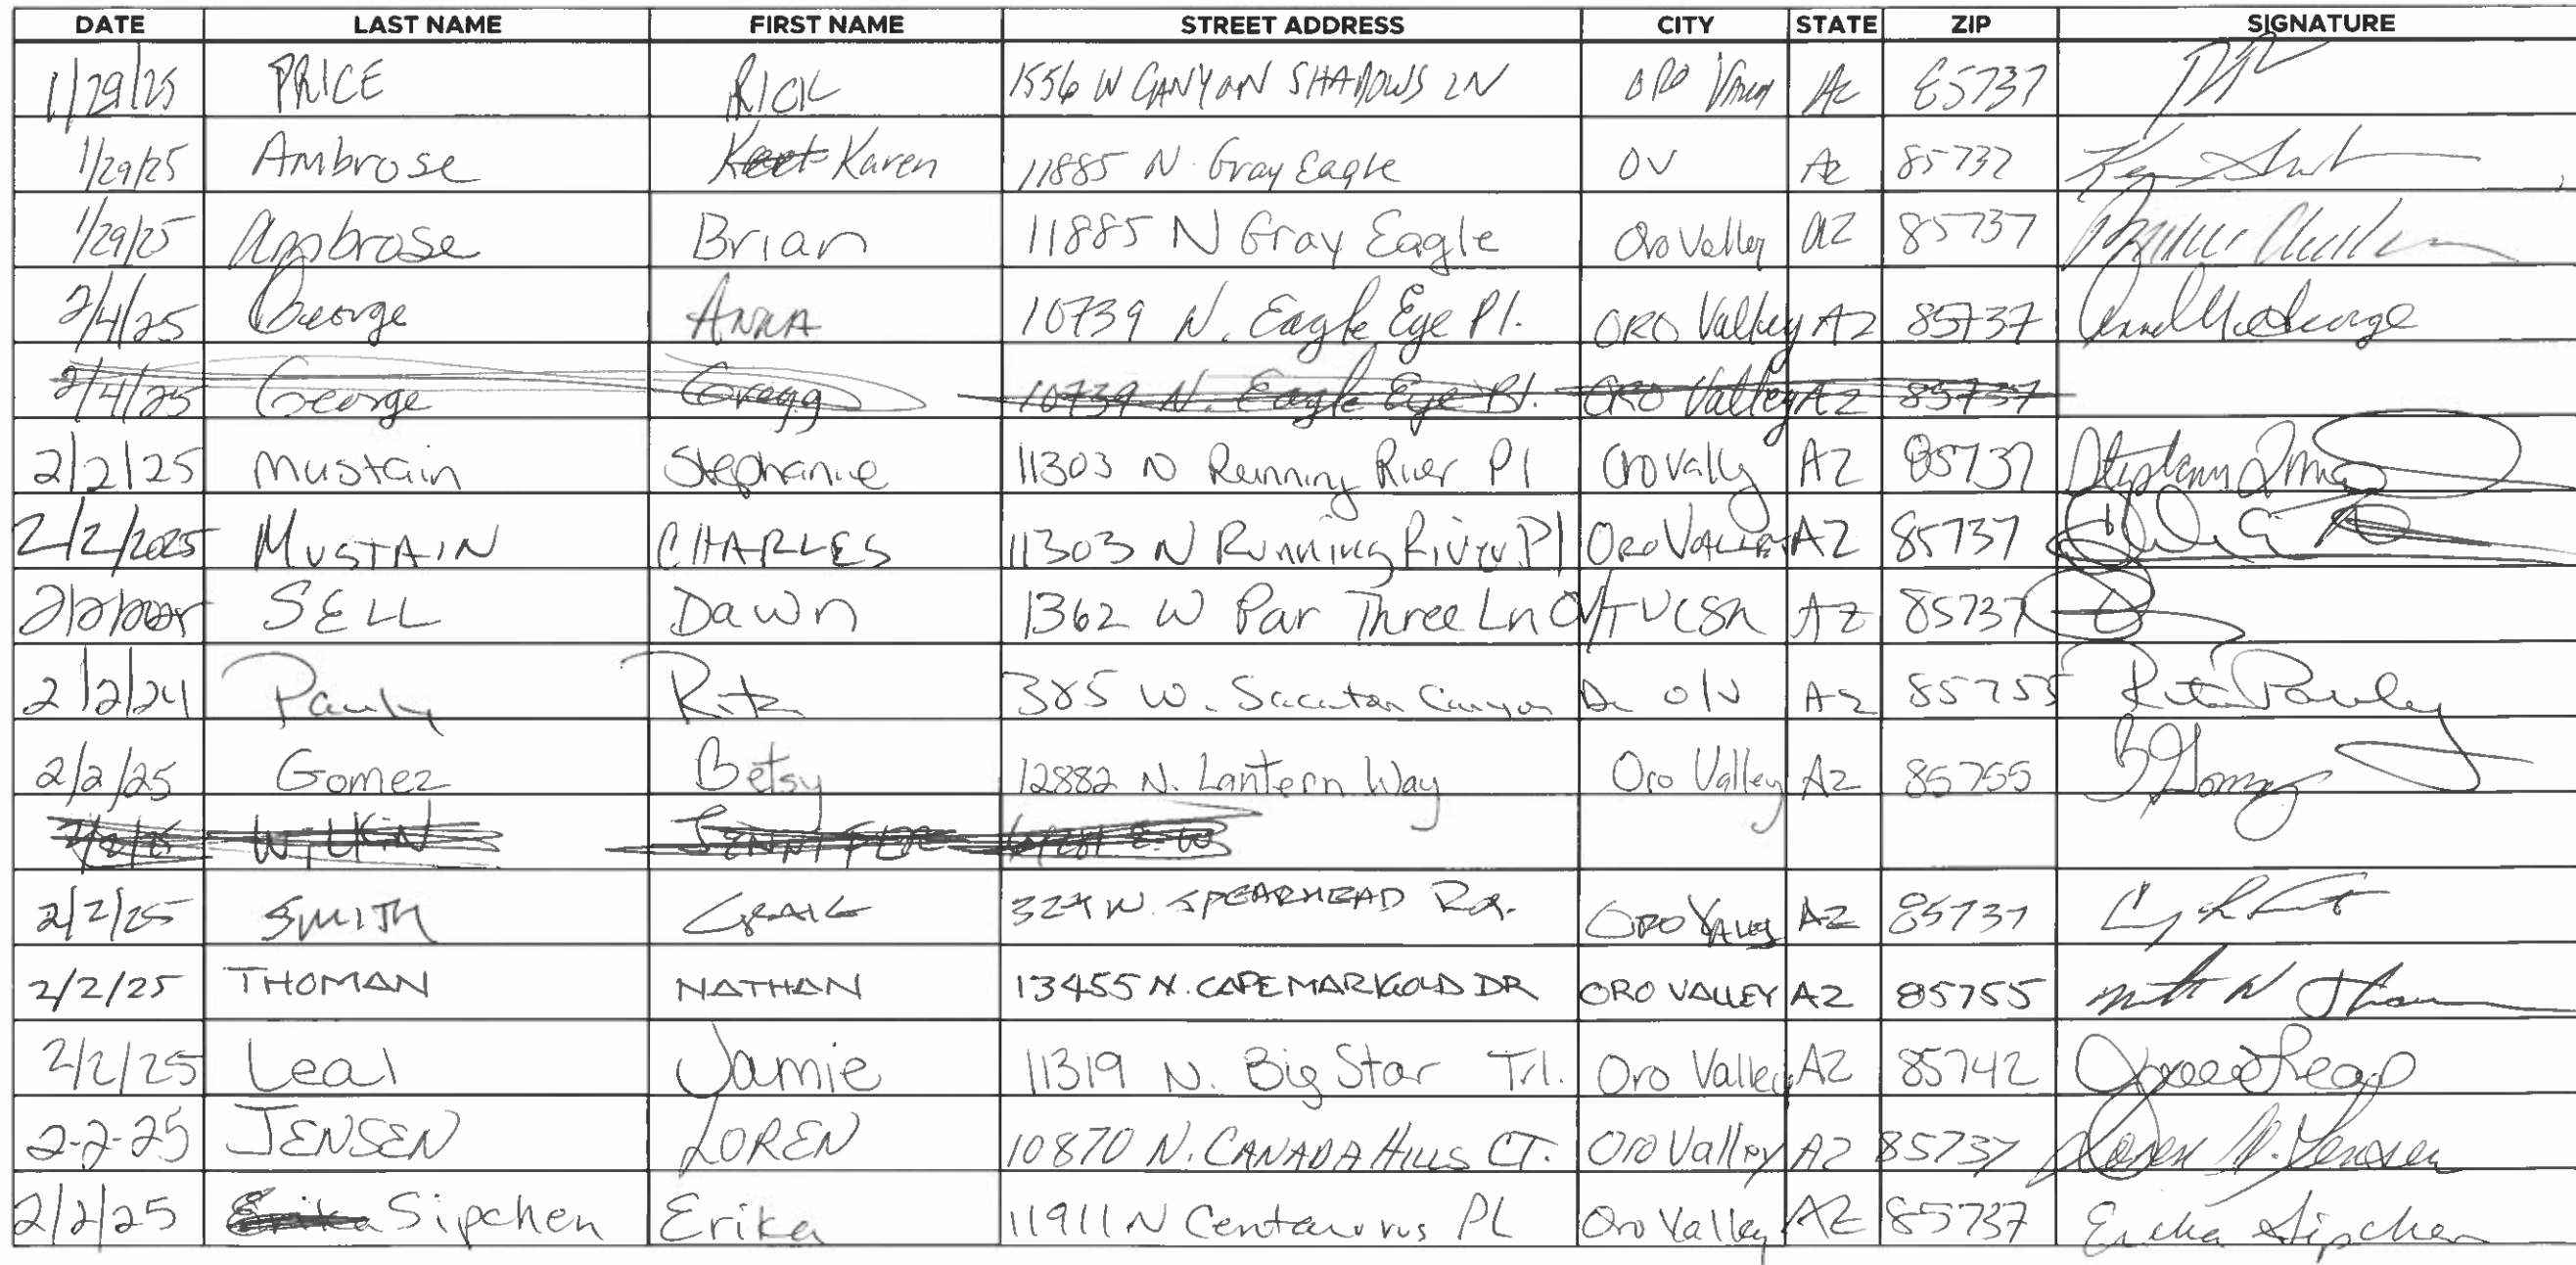 DATE LAST NAME FIRST NAME STREET ADDRESS CITY STATE ZIP SIGNATURE
1/29/25 PRICE RICK 1556 W CANYON SHADOWS LN ORO Valley AZ 85737
1/29/25 Ambrose Karen 11885 N. Gray Eagle OV AZ 85737
1/29/25 Ambrose Brian 11885 N Gray Eagle Oro Valley AZ 85737
2/4/25 George ANNA 10739 N. Eagle Eye Pl. ORO Valley AZ 85737
2/4/25 George Gregg 10739 N. Eagle Eye Pl. ORO Valley AZ 85737
2/2/25 Mustain Stephanie 11303 N Running River Pl Oro Vally AZ 85737
2/2/2025 MUSTAIN CHARLES 11303 N Running River Pl Oro Valley AZ 85737
2/2/2025 SELL Dawn 1362 W Par Three Ln OV/Tucson AZ 85737
2/2/24 Pauly Rita 385 W. Sacaton Canyon Dr O/V AZ 85755 Rita Pauly
2/2/25 Gomez Betsy 12882 N. Lantern Way Oro Valley AZ 85755 B Gomez
2/2/25 WILKIN JENNIFER
2/2/25 SMITH CRAIG 324 W. SPEARHEAD Rd. ORO Valley AZ 85737
2/2/25 THOMAN NATHAN 13455 N. CAPE MARIGOLD DR ORO VALLEY AZ 85755
2/2/25 Leal Jamie 11319 N. Big Star Trl. Oro Valley AZ 85742
2-2-25 JENSEN LOREN 10870 N. CANADA HILLS CT. Oro Valley AZ 85737 Loren N. Jensen
2/2/25 Erika Sipchen Erika 11911 N Centaurus PL Oro Valley AZ 85737 Erika Sipchen